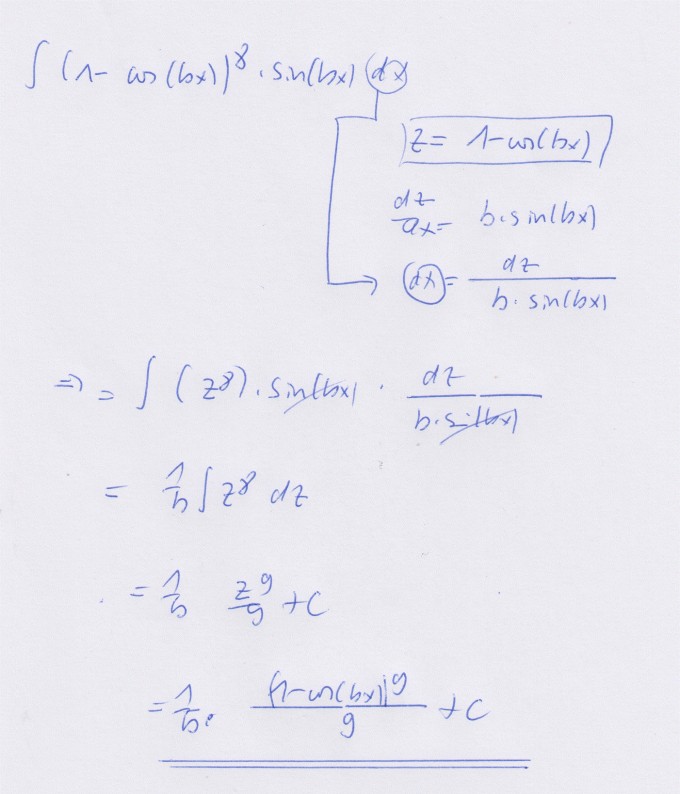 ∫ (1 - cos(bx))^8 · sin(bx) dx
z = 1 - cos(bx)
dz/dx = b·sin(bx)
dx = dz / (b · sin(bx))
⇒ = ∫ (z^8) · sin(bx) · dz / (b·sin(bx))
= 1/b ∫ z^8 dz
= 1/b z^9/9 + C
= 1/b · (1-cos(bx))^9 / 9 + C